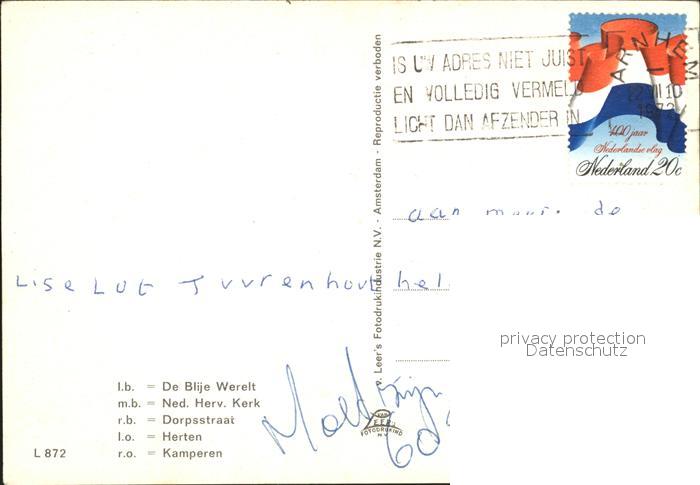 IS UW ADRES NIET JUIST
EN VOLLEDIG VERMELD
LICHT DAN AFZENDER IN
ARNHEM
1972
400 jaar
Nederlandse vlag
Nederland 20c
v. Leer's Fotodrukindustrie N.V. - Amsterdam - Reproductie verboden
aan de
Lise Lot hel
privacy protection
Datenschutz
l.b. = De Blije Werelt
m.b. = Ned. Herv. Kerk
r.b. = Dorpsstraat
l.o. = Herten
r.o. = Kamperen
L 872
VAN
LEER'S
FOTODRUKIND
N.V.
60